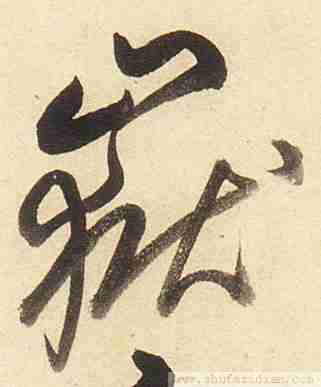 嶽
www.shufazidian.com